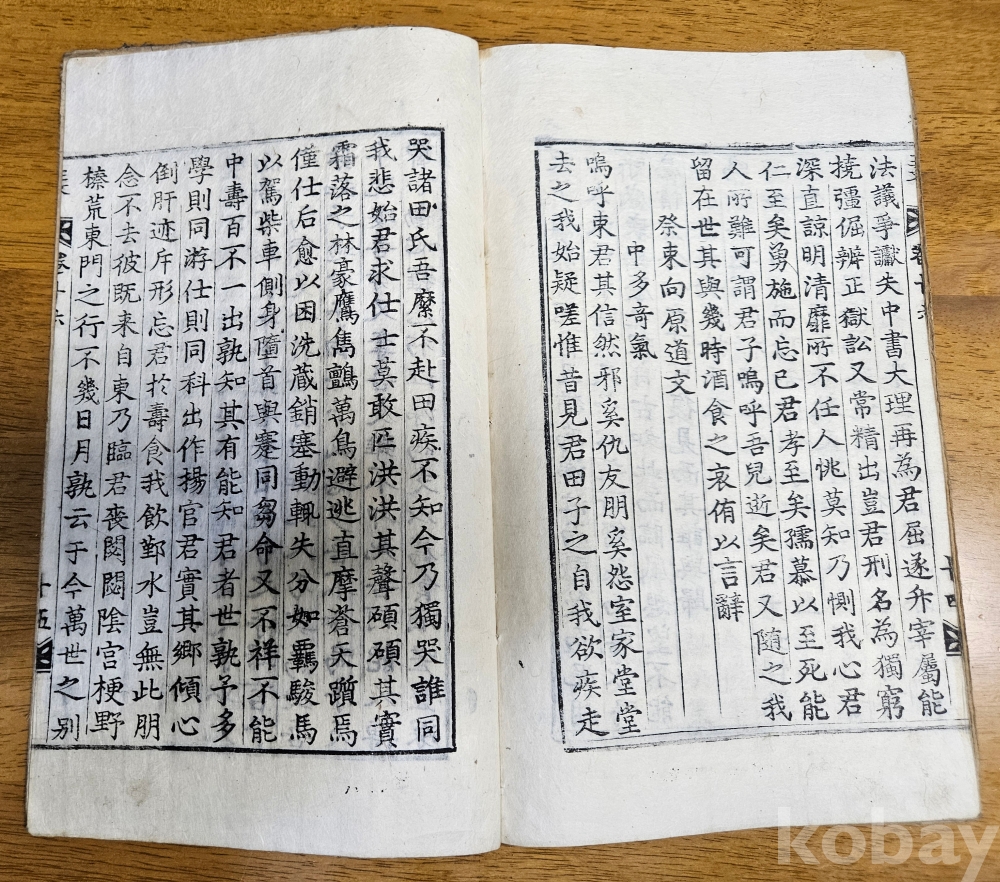 法議爭讞失中書大理再為君屈遂升宰屬能
撓彊倔辨正獄訟又常精出豈君刑名為獨窮
深直諒明清靡所不任人恌莫知乃惻我心君
仁至矣勇施而忘已君孝至矣孺慕以至死能
人所難可謂君子嗚呼吾兒逝矣君又隨之我
留在世其與幾時酒食之哀侑以言辭
祭東向原道文
中多竒氣
嗚呼東君其信然邪奚仇友朋奚怨室家堂堂
去之我始疑嗟惟昔見君田子之自我欲疾走
十四
哭諸田氏吾縻不赴田疾不知今乃獨哭誰同
我悲始君求仕士莫敢匹洪洪其聲碩碩其實
霜落之林豪鷹雋鸇萬鳥避逃直摩蒼天躓焉
僅仕后愈以困洗蔵銷塞動輒失分如羈駿馬
以駕柴車側身墮首與蹇同芻命又不祥不能
中壽百不一出孰知其有能知君者世孰予多
學則同游仕則同科出作揚官君實其鄉傾心
倒肝迹斥形忘君於壽食我飲鄞水豈無此朋
念不去彼既来自東乃臨君喪閟閟陰宫梗野
榛荒東門之行不幾日月孰云于今萬世之别
十五
kobay